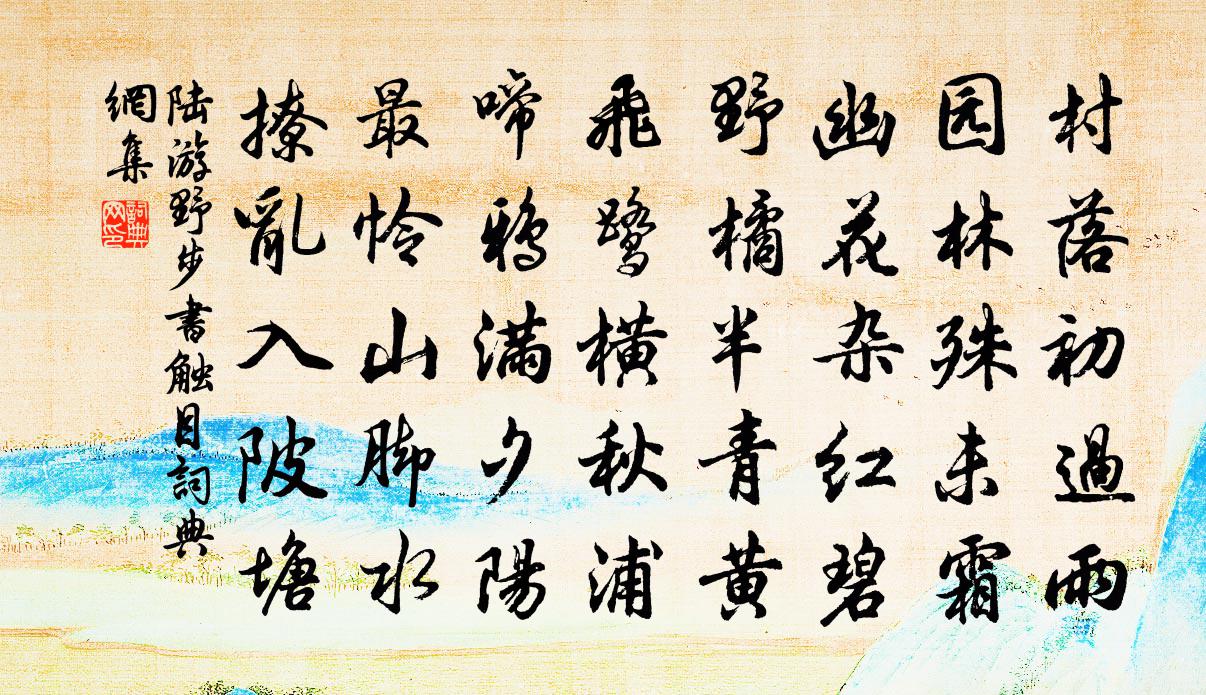 村落初過雨
园林殊未霜
幽花杂红碧
野橘半青黄
飛鹭横秋浦
啼鴉满夕陽
最怜山脚水
撩亂入陂塘
陆游野步書触目詞典
網集
詞典
网印